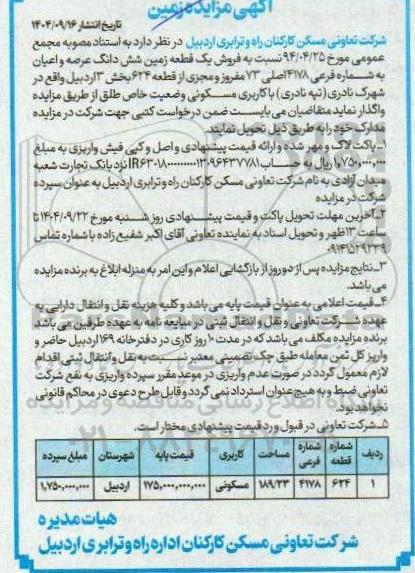 آگهی مزایده زمین
تاریخ انتشار ۱۴۰۴/۰۹/۱۶
شرکت تعاونی مسکن کارکنان راه و ترابری اردبیل در نظر دارد به استناد مصوبه مجمع
عمومی مورخ ۹۴/۰۴/۲۵ نسبت به فروش یک قطعه زمین شش دانگ عرصه و اعیان
به شماره فرعی ۴۱۷۸ اصلی ۷۳ مفروز و مجزی از قطعه ۶۲۴ بخش ۳ اردبیل واقع در
شهرک نادری (تپه نادری) با کاربری مسکونی وضعیت خاص طلق از طریق مزایده
واگذار نماید متقاضیان می بایست ضمن درخواست کتبی جهت شرکت در مزایده
مدارک خود را به طریق ذیل تحویل نمایند.
۱- پاکت لاک و مهر شده و ارائه قیمت پیشنهادی و اصل و کپی فیش واریزی به مبلغ
۱,۷۵۰,۰۰۰,۰۰۰ ریال به حساب نزد بانک تجارت شعبه
میدان آزادی به نام شرکت تعاونی مسکن کارکنان راه و ترابری اردبیل به عنوان سپرده
شرکت در مزایده
۲- آخرین مهلت تحویل پاکت و قیمت پیشنهادی روز شنبه مورخ ۱۴۰۴/۰۹/۲۲ تا
ساعت ۱۳ ظهر و تحویل اسناد به نماینده تعاونی آقای اکبر شفیع زاده با شماره تماس
۰۹۱۴۱۵۲۹۲۳۹
۳- نتایج مزایده پس از دو روز از بازگشایی اعلام و این امر به منزله ابلاغ به برنده مزایده
می باشد.
۴- قیمت اعلامی به عنوان قیمت پایه می باشد و کلیه هزینه نقل و انتقال دارایی به
عهده شرکت تعاونی و نقل و انتقال ثبتی در مبایعه نامه به عهده طرفین می باشد
برنده مزایده مکلف می باشد که در مدت ۱۰ روز کاری در دفترخانه ۱۶۹ اردبیل حاضر و
واریز کل ثمن معامله طبق چک تضمینی معتبر نسبت به نقل و انتقال ثبتی اقدام
لازم معمول گردد در صورت عدم واریزی در موعد مقرر سپرده واریزی به نفع شرکت
تعاونی ضبط و به هیچ عنوان استرداد نمی گردد و قابل طرح دعوی در محاکم قانونی
نخواهد بود.
۵- شرکت تعاونی در قبول و رد قیمت پیشنهادی مختار است.
ردیف شماره قطعه شماره فرعی مساحت کاربری قیمت پایه شهرستان مبلغ سپرده
۱ ۶۲۴ ۴۱۷۸ ۱۸۹/۲۳ مسکونی ۱۷۵,۰۰۰,۰۰۰,۰۰۰ اردبیل ۱,۷۵۰,۰۰۰,۰۰۰
هیات مدیره
شرکت تعاونی مسکن کارکنان اداره راه و ترابری اردبیل